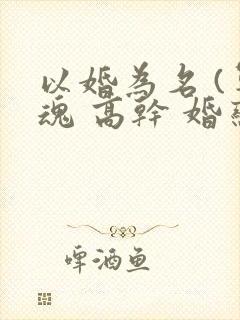 以婚為名(
魂 高幹 婚
啤酒鱼